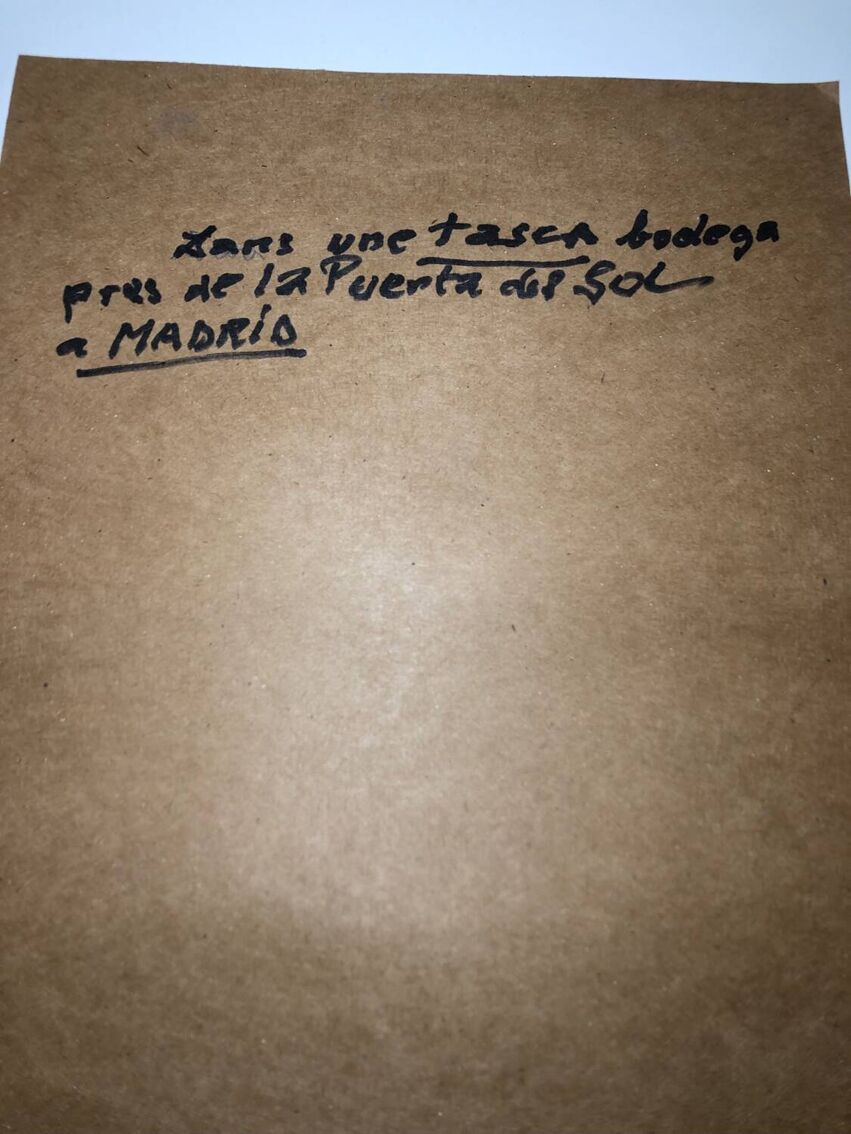 Dans une tasca bodega
pres de la Puerta del SOL
a MADRID